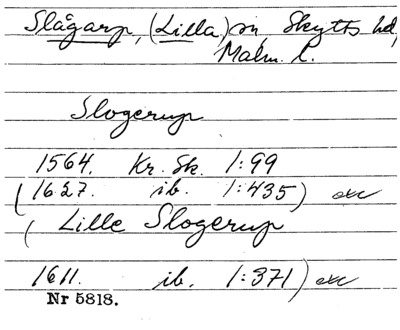 Slågarp, (Lilla) sn, Skytts hd,
Malm. l.
Slogerup
1564. Kr. Sk. 1:99
(1627. ib. 1:435) exc
(Lille Slogerup
1611. ib. 1:371) exc
Nr 5818.